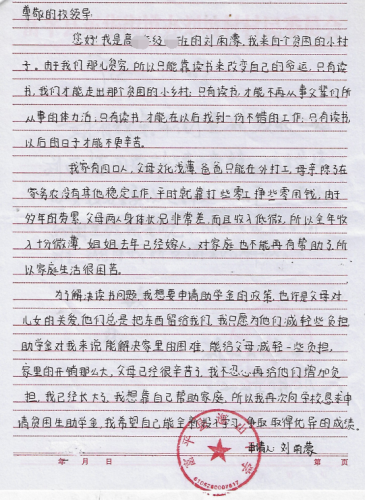 尊敬的校领导:
您好!我是高 经 班的刘雨蒙,我来自个贫困的小村
子。由于我们那儿贫穷,所以只能靠读书来改变自己的命运,只有读
书,我们才能走出那个贫困的小乡村;只有读书,才能不再从事父辈们所
从事的体力活;只有读书,才能在以后找到一份不错的工作;只有读书
以后的日子才能不更辛苦。
我家有四口人,父母文化浅薄,爸爸只能在外打工,母亲除了在
家务农没有其他稳定工作,平时就靠打些零工挣些零用钱,由于
劳年的劳累,父母两人身体状况非常差,而且收入低微,所以全年收
入十份微薄,姐姐去年已经嫁人,对家庭也不能再有帮助了,所
以家庭生活很困苦。
为了解决读书问题,我想要申请助学金的政策,也许是父母对
儿女的关爱,他们总是把东西留给我们,我只愿为他们减轻些负担
助学金对我来说能解决家里的困难,能给父母减轻一些负担,
家里的开销那么大,父母已经很辛苦了,我不忍心再给他们增加负
担,我已经长大了,我想靠自己帮助家庭,所以我再次向学校恳求申
请贫困生助学金,我希望自己能全新投入学习,争取取得优异的成绩.
申请人:刘雨蒙
年 月 日 第 页